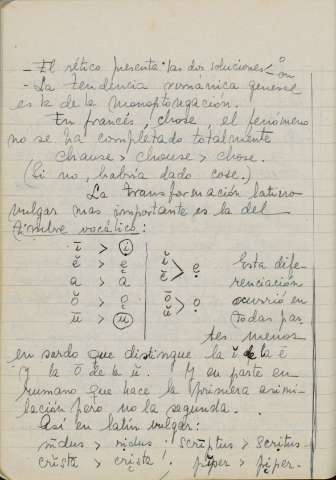 - El rético presenta las dos soluciones < o
ou
- La tendencia románica general
es la de la monoptongación.
En francés, chose, el fenómeno
no se ha completado totalmente
chause > chouse > chose.
(Si no, habría dado cose.)
La transformación latino
vulgar mas importante es la del
timbre vocálico:
ī > i
ĕ > ę
a > a
ŏ > ǫ
ū > u
ĭ
ē > ẹ
ō
ŭ > ọ
Esta dife-
renciación
ocurrió en
todas par-
tes menos
en sardo que distingue la ĭ de la ē
y la ō de la ŭ. Y en parte en
rumano que hace la primera asimi-
lación pero no la segunda.
Así en latín vulgar:
nīdus > nidus. scrīptus > scritus.
crĭsta > crẹsta. pĭper > pẹper.